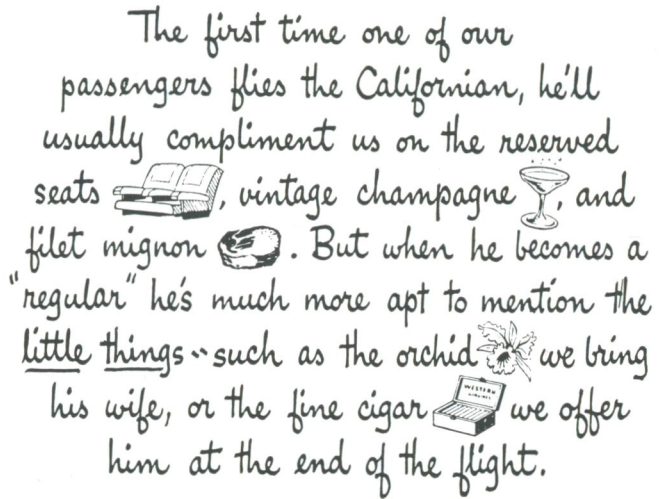 The first time one of our
passengers flies the Californian, he'll
usually compliment us on the reserved
seats , vintage champagne , and
filet mignon . But when he becomes a
"regular" he's much more apt to mention the
little things -- such as the orchid we bring
WESTERN
AIRLINES
his wife, or the fine cigar we offer
him at the end of the flight.